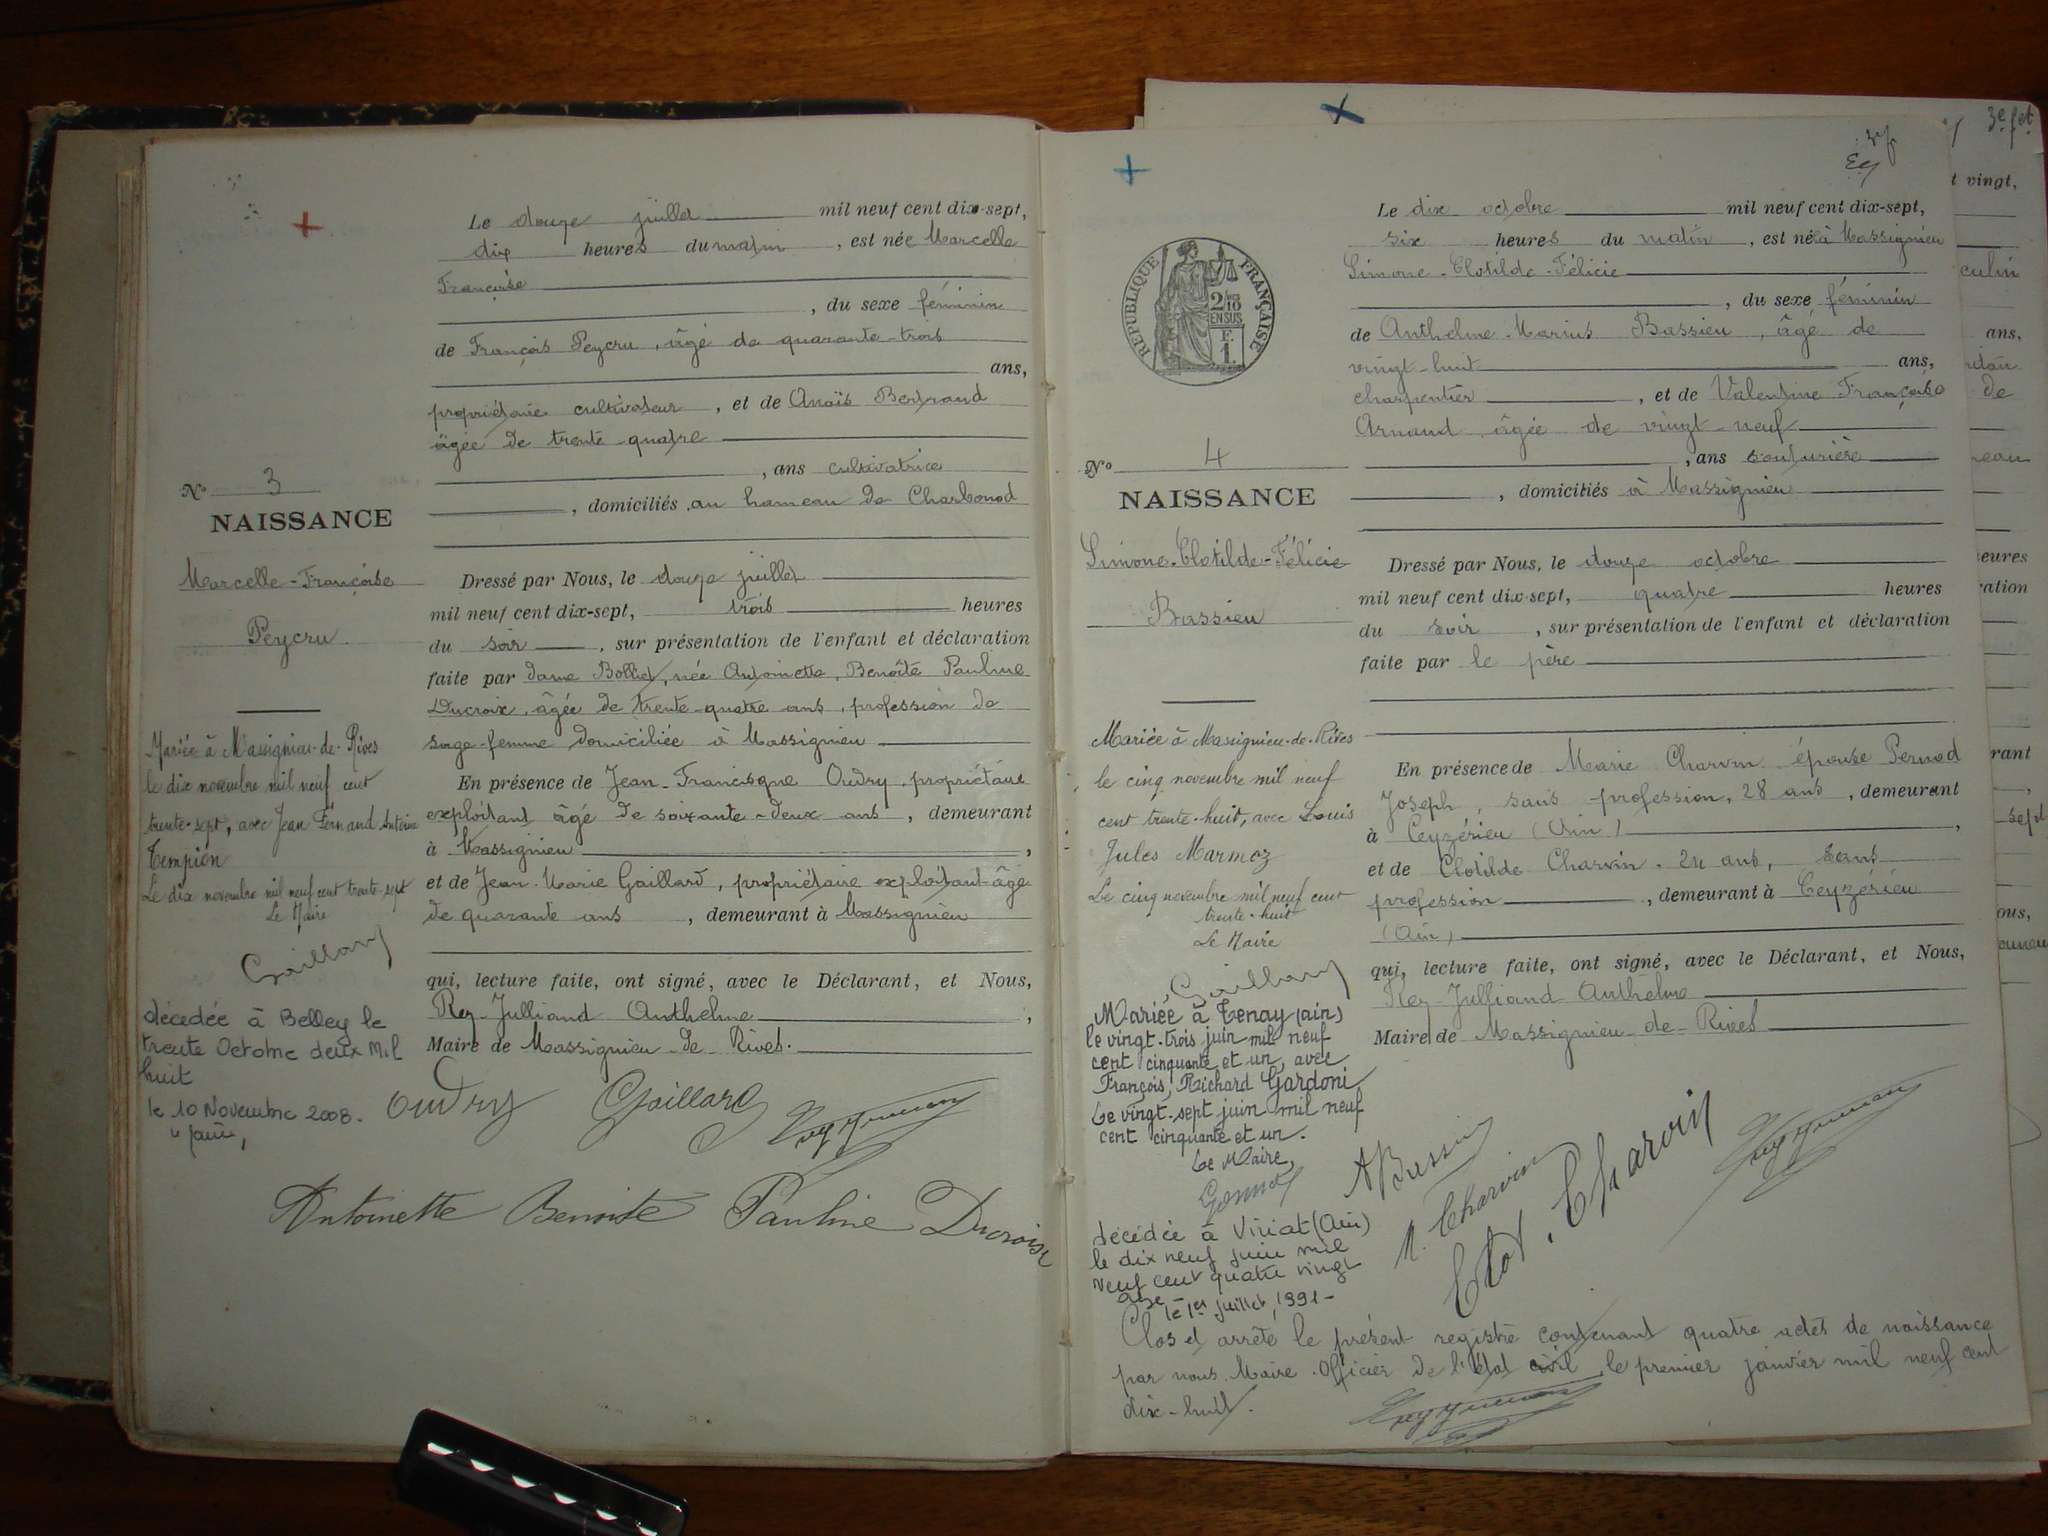 Le douze juillet mil neuf cent dix-sept,
dix heures du matin, est née Marcelle
Françoise
, du sexe féminin
de François Peycru, âgé de quarante-trois
ans,
propriétaire cultivateur, et de Anaïs Bertrand
âgée de trente-quatre
, ans cultivatrice
, domiciliés au hameau de Charbonod
No 3
NAISSANCE
Marcelle-Françoise
Peycru
Dressé par Nous, le douze juillet
mil neuf cent dix-sept, trois heures
du soir, sur présentation de l'enfant et déclaration
faite par dame Bolliet, née Antoinette, Benoîte Pauline
Ducroix, âgée de trente-quatre ans, profession de
sage-femme domiciliée à Massignieu
En présence de Jean-Francisque Oudry, propriétaire
exploitant âgé de soixante-deux ans, demeurant
à Massignieu,
et de Jean-Marie Gaillard, propriétaire exploitant âgé
de quarante ans, demeurant à Massignieu
qui, lecture faite, ont signé, avec le Déclarant, et Nous,
Rey-Julliand Anthelme,
Maire de Massignieu-de-Rives.
Mariée à Massignieu-de-Rives
le dix novembre mil neuf cent
trente-sept, avec Jean Fernand Antoine
Tempion
Le dix novembre mil neuf cent trente-sept
Le Maire
Gaillard
décédée à Belley le
trente Octobre deux Mil
huit
le 10 Novembre 2008.
Oudry Gaillard
Antoinette Benoite Pauline Ducroix
3e fet
Le dix octobre mil neuf cent dix-sept,
six heures du matin, est née à Massignieu
Simone-Clotilde-Félicie
, du sexe féminin
de Anthelme-Marius Bassieu, âgé de
vingt-huit ans,
charpentier, et de Valentine Françoise
Arnaud âgée de vingt-neuf
, ans couturière
, domiciliés à Massignieu
RÉPUBLIQUE FRANÇAISE
2/10 EN SUS
F. 1.
No 4
NAISSANCE
Simone-Clotilde-Félicie
Bassieu
Dressé par Nous, le douze octobre
mil neuf cent dix-sept, quatre heures
du soir, sur présentation de l'enfant et déclaration
faite par le père
En présence de Marie Charvin épouse Pernod
Joseph, sans profession, 28 ans, demeurant
à Ceyzérieu (Ain),
et de Clotilde Charvin. 24 ans, sans
profession, demeurant à Ceyzérieu
(Ain)
qui, lecture faite, ont signé, avec le Déclarant, et Nous,
Rey-Julliand Anthelme
Maire de Massignieu-de-Rives
Mariée à Massignieu-de-Rives
le cinq novembre mil neuf
cent trente-huit, avec Louis
Jules Marmoz
Le cinq novembre mil neuf cent
trente-huit
Le Maire
Gaillard
Mariée à Tenay (ain)
le vingt-trois juin mil neuf
cent cinquante et un, avec
François, Richard Gardoni,
Le vingt-sept juin mil neuf
cent cinquante et un.
Le Maire,
décédée à Viriat (Ain)
le dix neuf juin mil
neuf cent quatre vingt
onze
le 1er juillet 1991-
ABassieu
M. Charvin
Clot. Charvin
Clos et arrêté le présent registre contenant quatre actes de naissance
par nous Maire Officier de l'état civil le premier janvier mil neuf cent
dix-huit.
t vingt,
culin
ans,
de
eures
ration
rant
sept
ous,